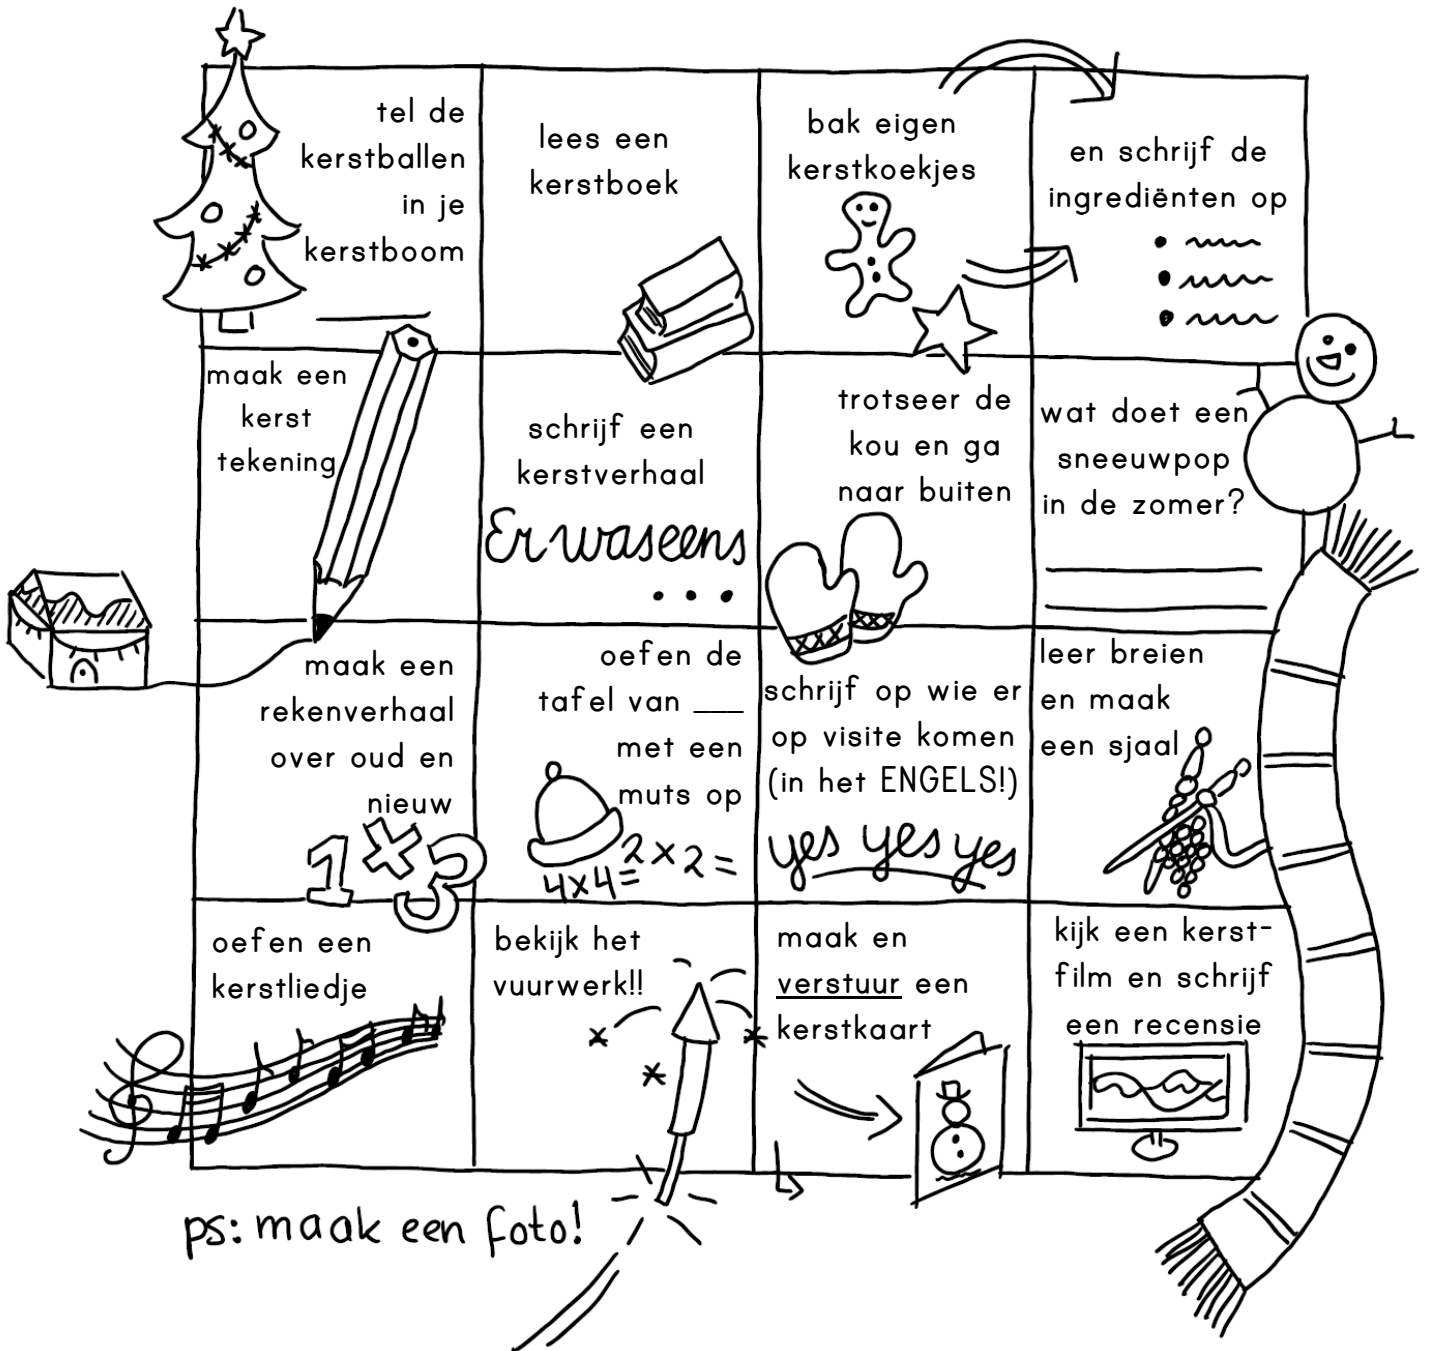 tel de
kerstballen
in je
kerstboom
lees een
kerstboek
bak eigen
kerstkoekjes
en schrijf de
ingrediënten op
maak een
kerst
tekening
schrijf een
kerstverhaal
Er was eens
...
trotseer de
kou en ga
naar buiten
wat doet een
sneeuwpop
in de zomer?
maak een
rekenverhaal
over oud en
nieuw
1 x 3
oefen de
tafel van ___
met een
muts op
2 x 2 =
4x4=
schrijf op wie er
op visite komen
(in het ENGELS!)
yes yes yes
leer breien
en maak
een sjaal
oefen een
kerstliedje
bekijk het
vuurwerk!!
maak en
verstuur een
kerstkaart
kijk een kerst-
film en schrijf
een recensie
ps: maak een foto!